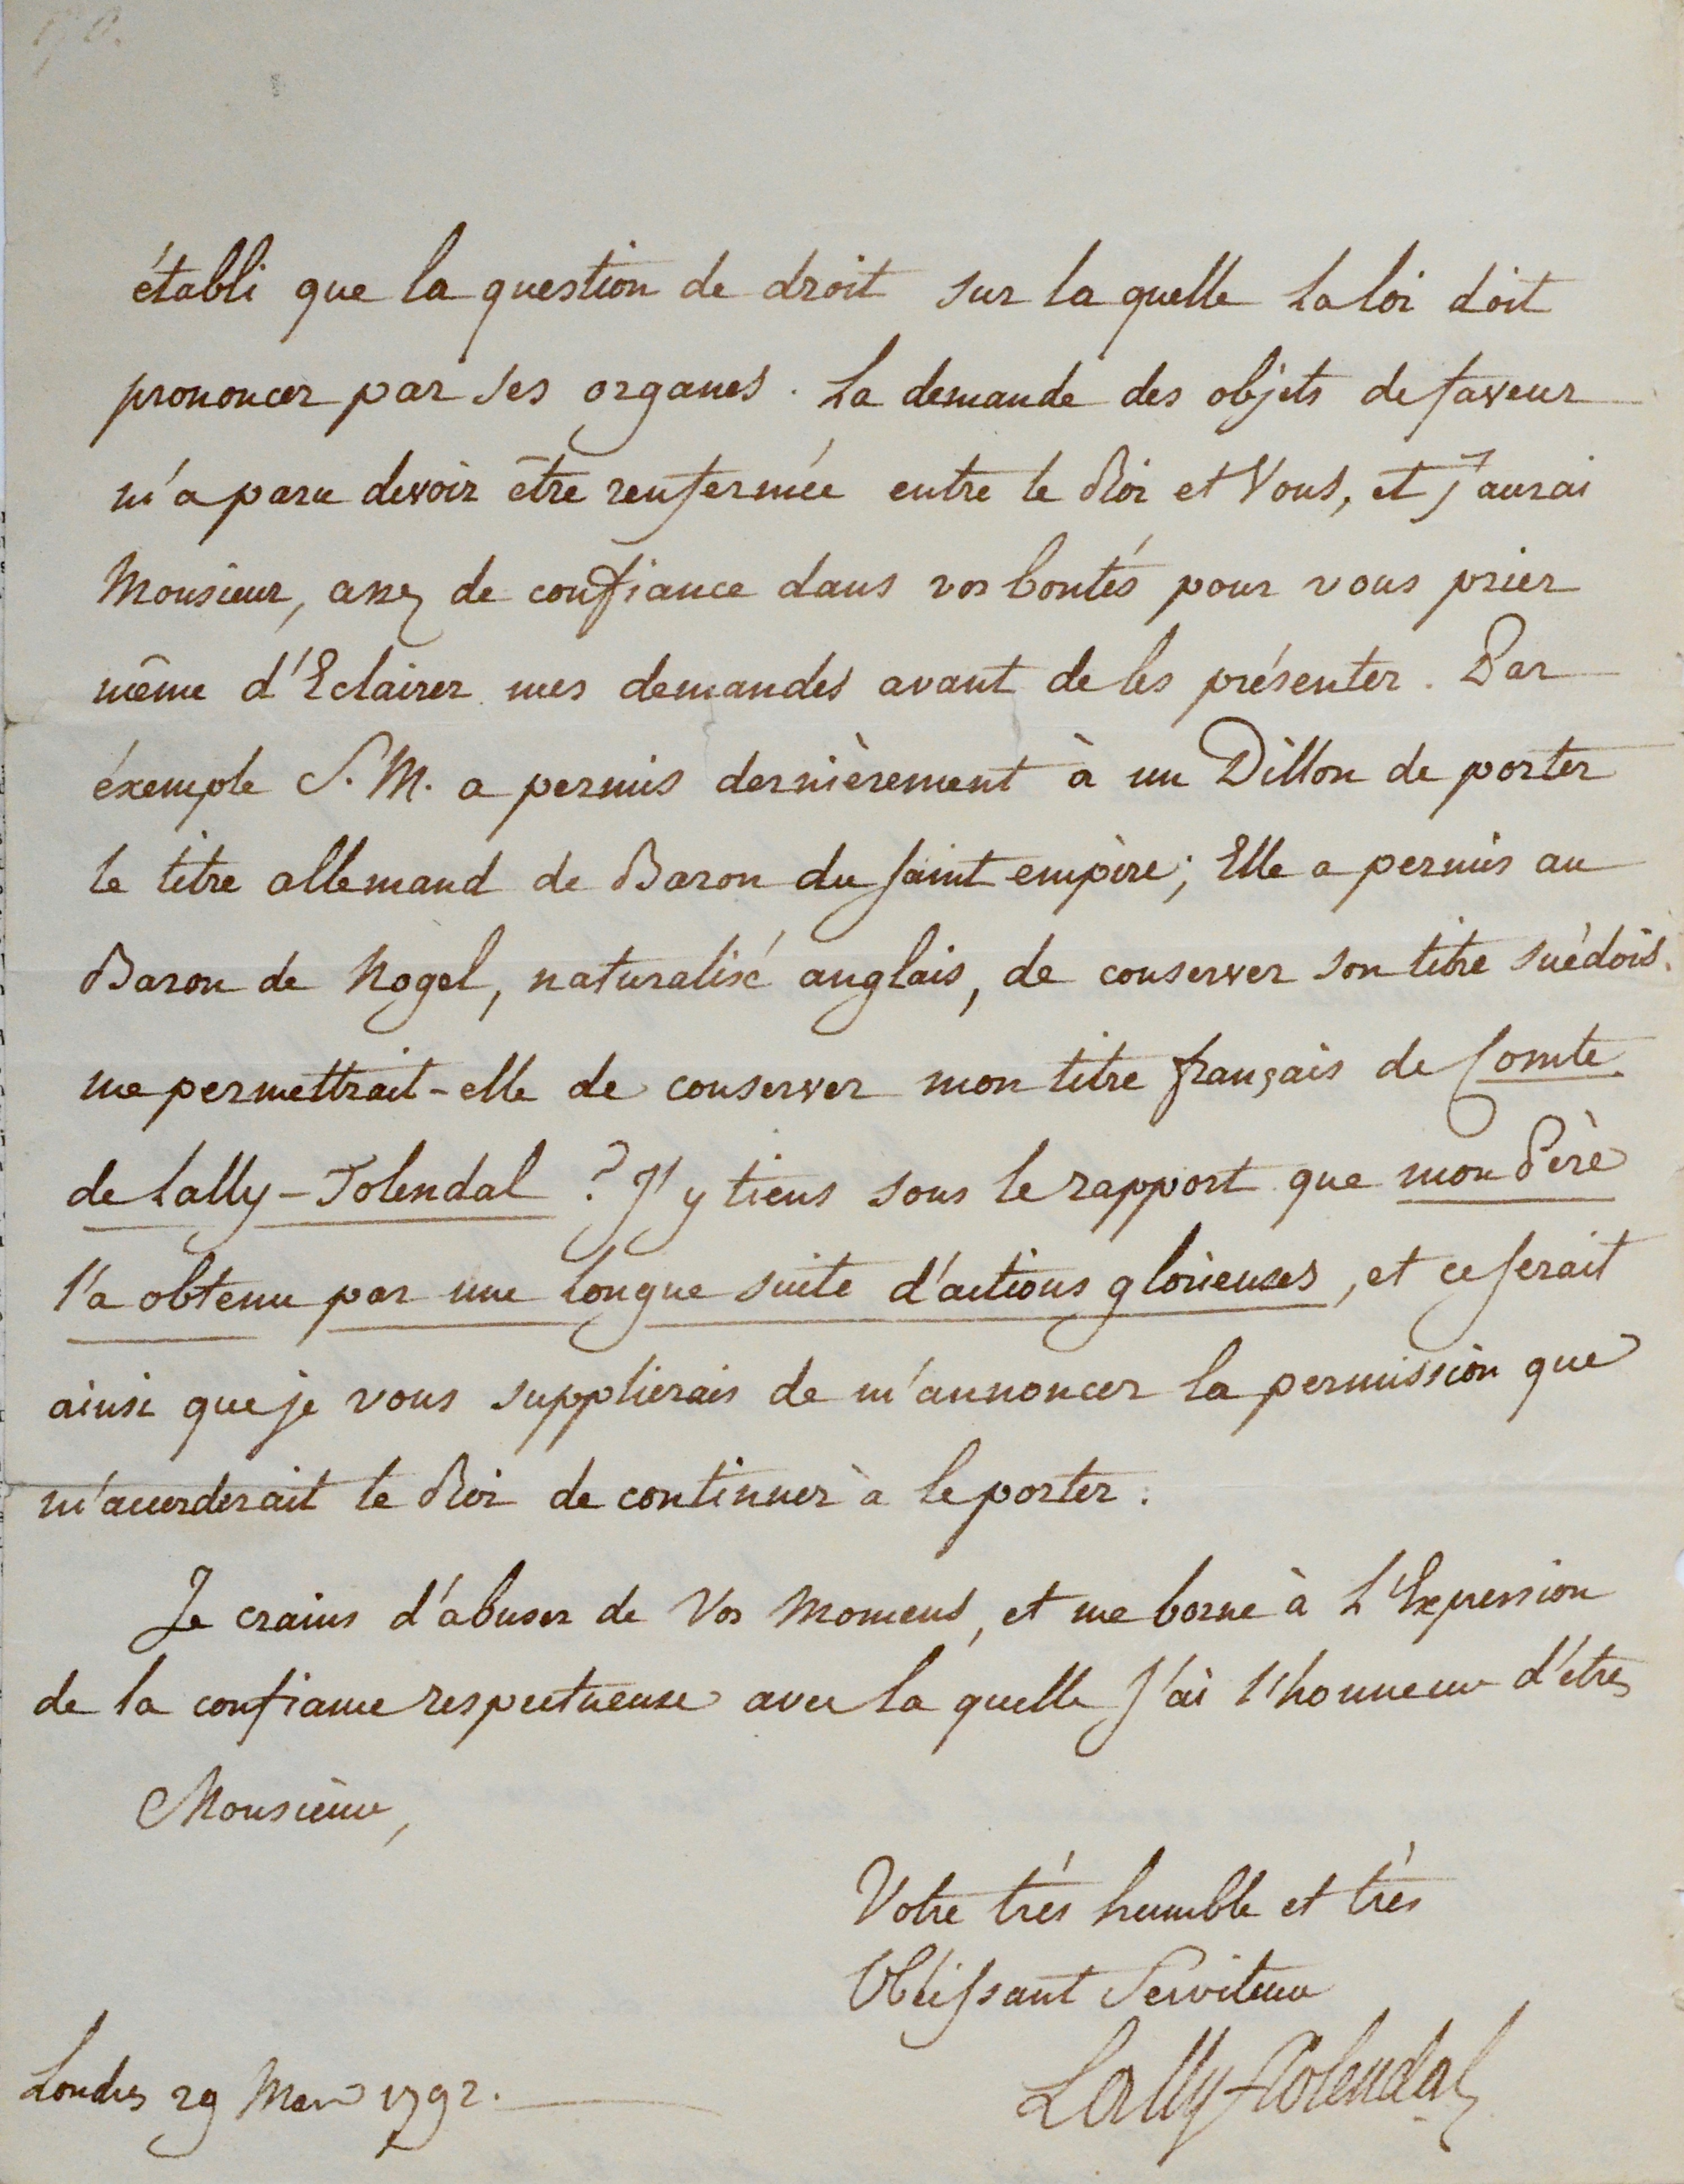 établi que la question de droit sur la quelle la loi doit
prononcer par ses organes. La demande des objets de faveur
m'a paru devoir être renfermée entre le Roi et Vous, et j'aurai
Monsieur, assez de confiance dans vos bontés pour vous prier
même d'Eclairer mes demandes avant de les présenter. Par
éxemple S. M. a permis dernièrement à un Dillon de porter
le titre allemand de Baron du saint empire; Elle a permis au
Baron de Nogel, naturalisé anglais, de conserver son titre suédois.
me permettrait-elle de conserver mon titre français de Comte
de Lally-Tolendal ? J'y tiens sous le rapport que mon Père
l'a obtenu par une longue suite d'actions glorieuses, et ce serait
ainsi que je vous supplierais de m'annoncer la permission que
m'accorderait le Roi de continuer à le porter.
Je crains d'abuser de Vos Momens, et me borne à L'Expression
de la confiance respectueuse avec la quelle J'ai l'honneur d'être,
Monsieur,
Votre très humble et très
Obéissant Serviteur
Lally-Tolendal
Londres 29 Mars 1792.